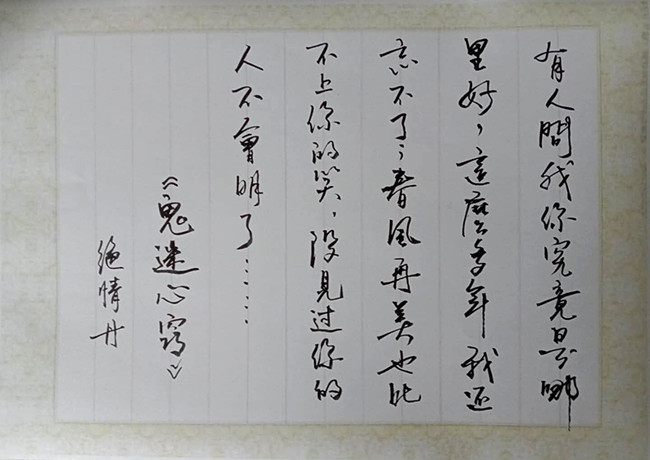 有人問我你究竟是哪
里好，這麼多年我还
忘不了，春風再美也比
不上你的笑，沒見过你的
人不會明了……
《鬼迷心竅》
絕情丹